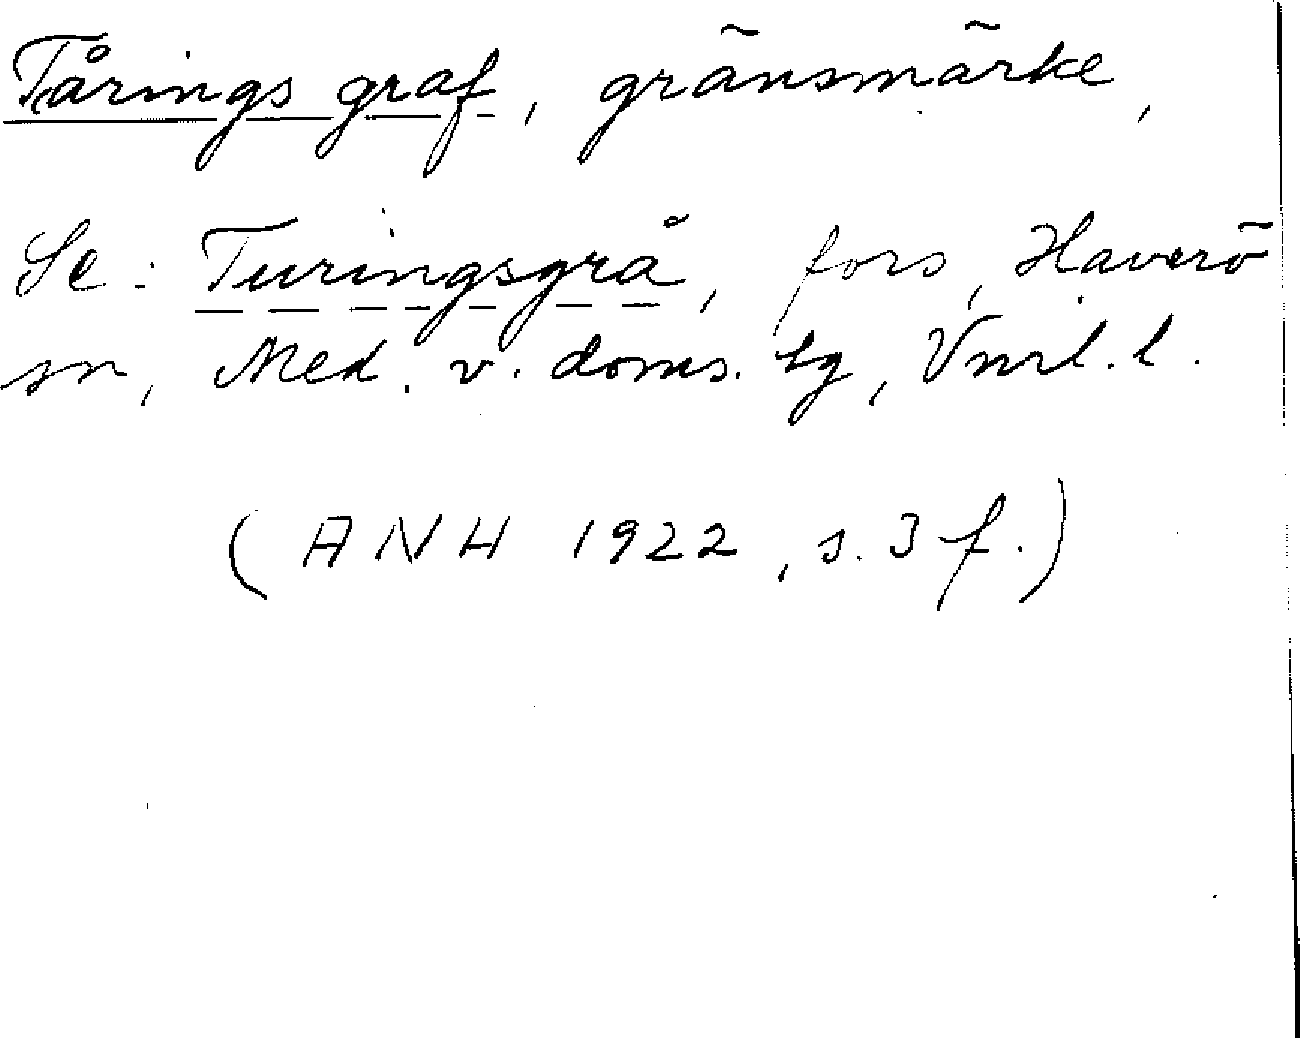 Tårings graf, gränsmärke,
Se: Turingsgrå, fors, Haverö
sn, Med. v. doms. tg, Vnrl. l.
(ANH 1922, s. 3 f.)